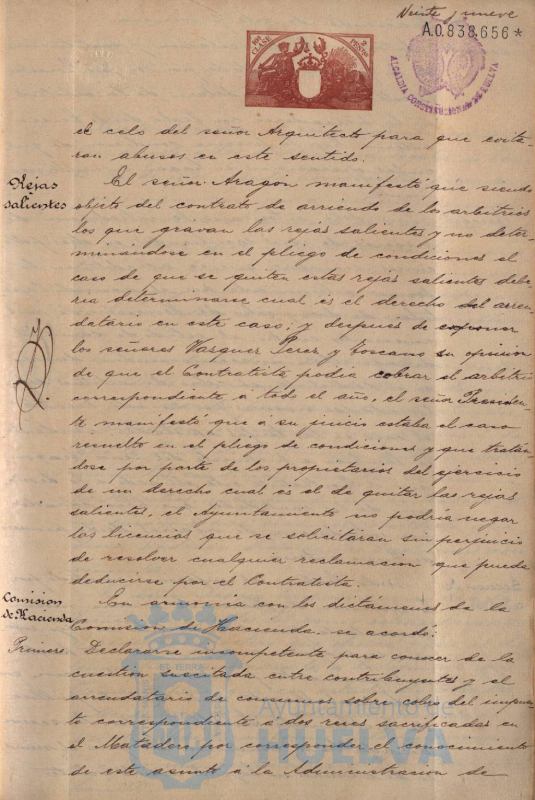 Veinte y nueve
A.0.838,656*
10ª CLASE
2 PESETAS
ALCALDIA CONSTITUCIONAL DE HUELVA
el celo del señor Arquitecto para que evita-
ran abusos en este sentido.
Rejas
salientes
El señor Aragón manifestó que siendo
objeto del contrato de arriendo de los arbitrios
los que gravan las rejas salientes y no deter-
minándose en el pliego de condiciones el
caso de que se quiten estas rejas salientes debe-
ria determinarse cual es el derecho del arren-
datario en este caso; y despues de exponer
los señores Vazquez Perez y Toscano su opinion
de que el Contratista podia cobrar el arbitrio
correspondiente á todo el año, el señor Presiden-
te manifestó que á su juicio estaba el caso
resuelto en el pliego de condiciones y que tratan-
dose por parte de los propietarios del ejercisio
de un derecho cual es el de quitar las rejas
salientes, el Ayuntamiento no podria negar
las licencias que se solicitaran sin perjuicio
de resolver cualquier reclamacion que pueda
deducirse por el Contratista.
Comision
de Hacienda
En armonia con los dictámenes de la
Comision de Hacienda, se acordó:
Primero. Declararse incompetente para conocer de la
cuestion suscitada entre contribuyentes y el
arrendatario de consumos sobre cobro del impues-
te correspondiente á dos reses sacrificadas en
el Matadero por corresponder el conocimiento
de este asunto á la Administracion de
Ayuntamiento de
HUELVA